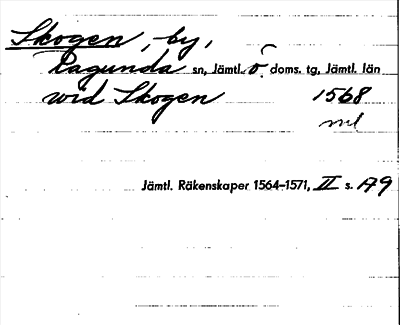 Skogen, by,
Ragunda sn, Jämtl. ö. doms. tg, Jämtl. län
wid Skogen 1568
Jämtl. Räkenskaper 1564–1571, II s. 179